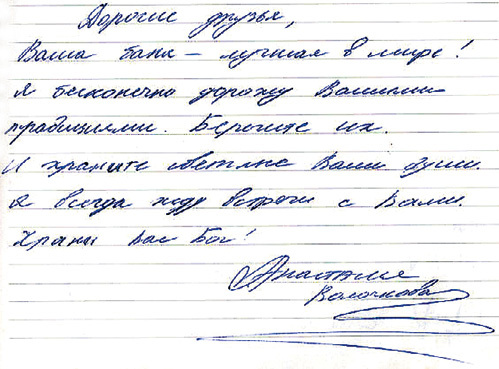 Дорогие друзья,
Ваша баня - лучшая в мире!
Я бесконечно дорожу Вашими
традициями. Берегите их.
И храните светлые Ваши души.
Я всегда жду встречи с Вами.
Храни Вас Бог!
Анастасия
Волочкова